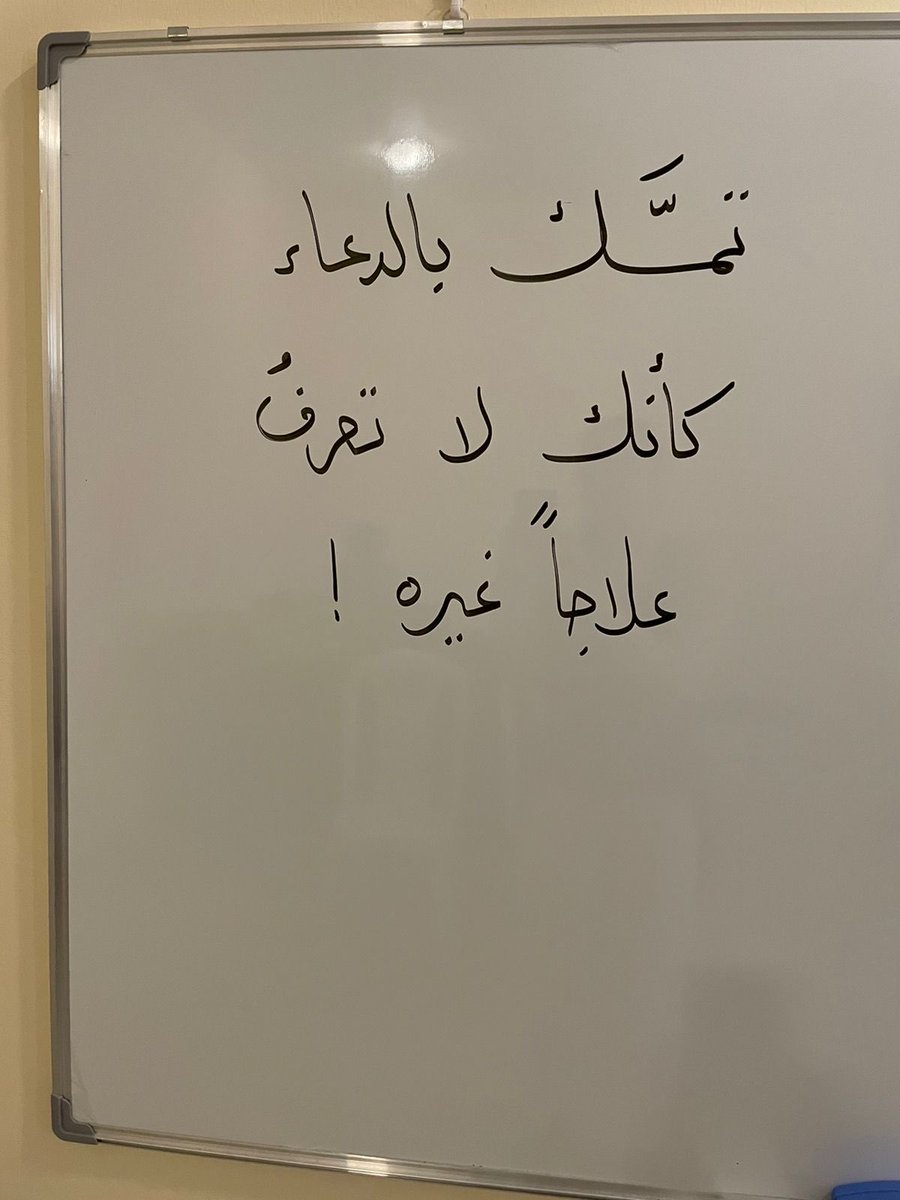 تمسَّك بالدعاء
كأنك لا تعرفُ
علاجاً غيره !